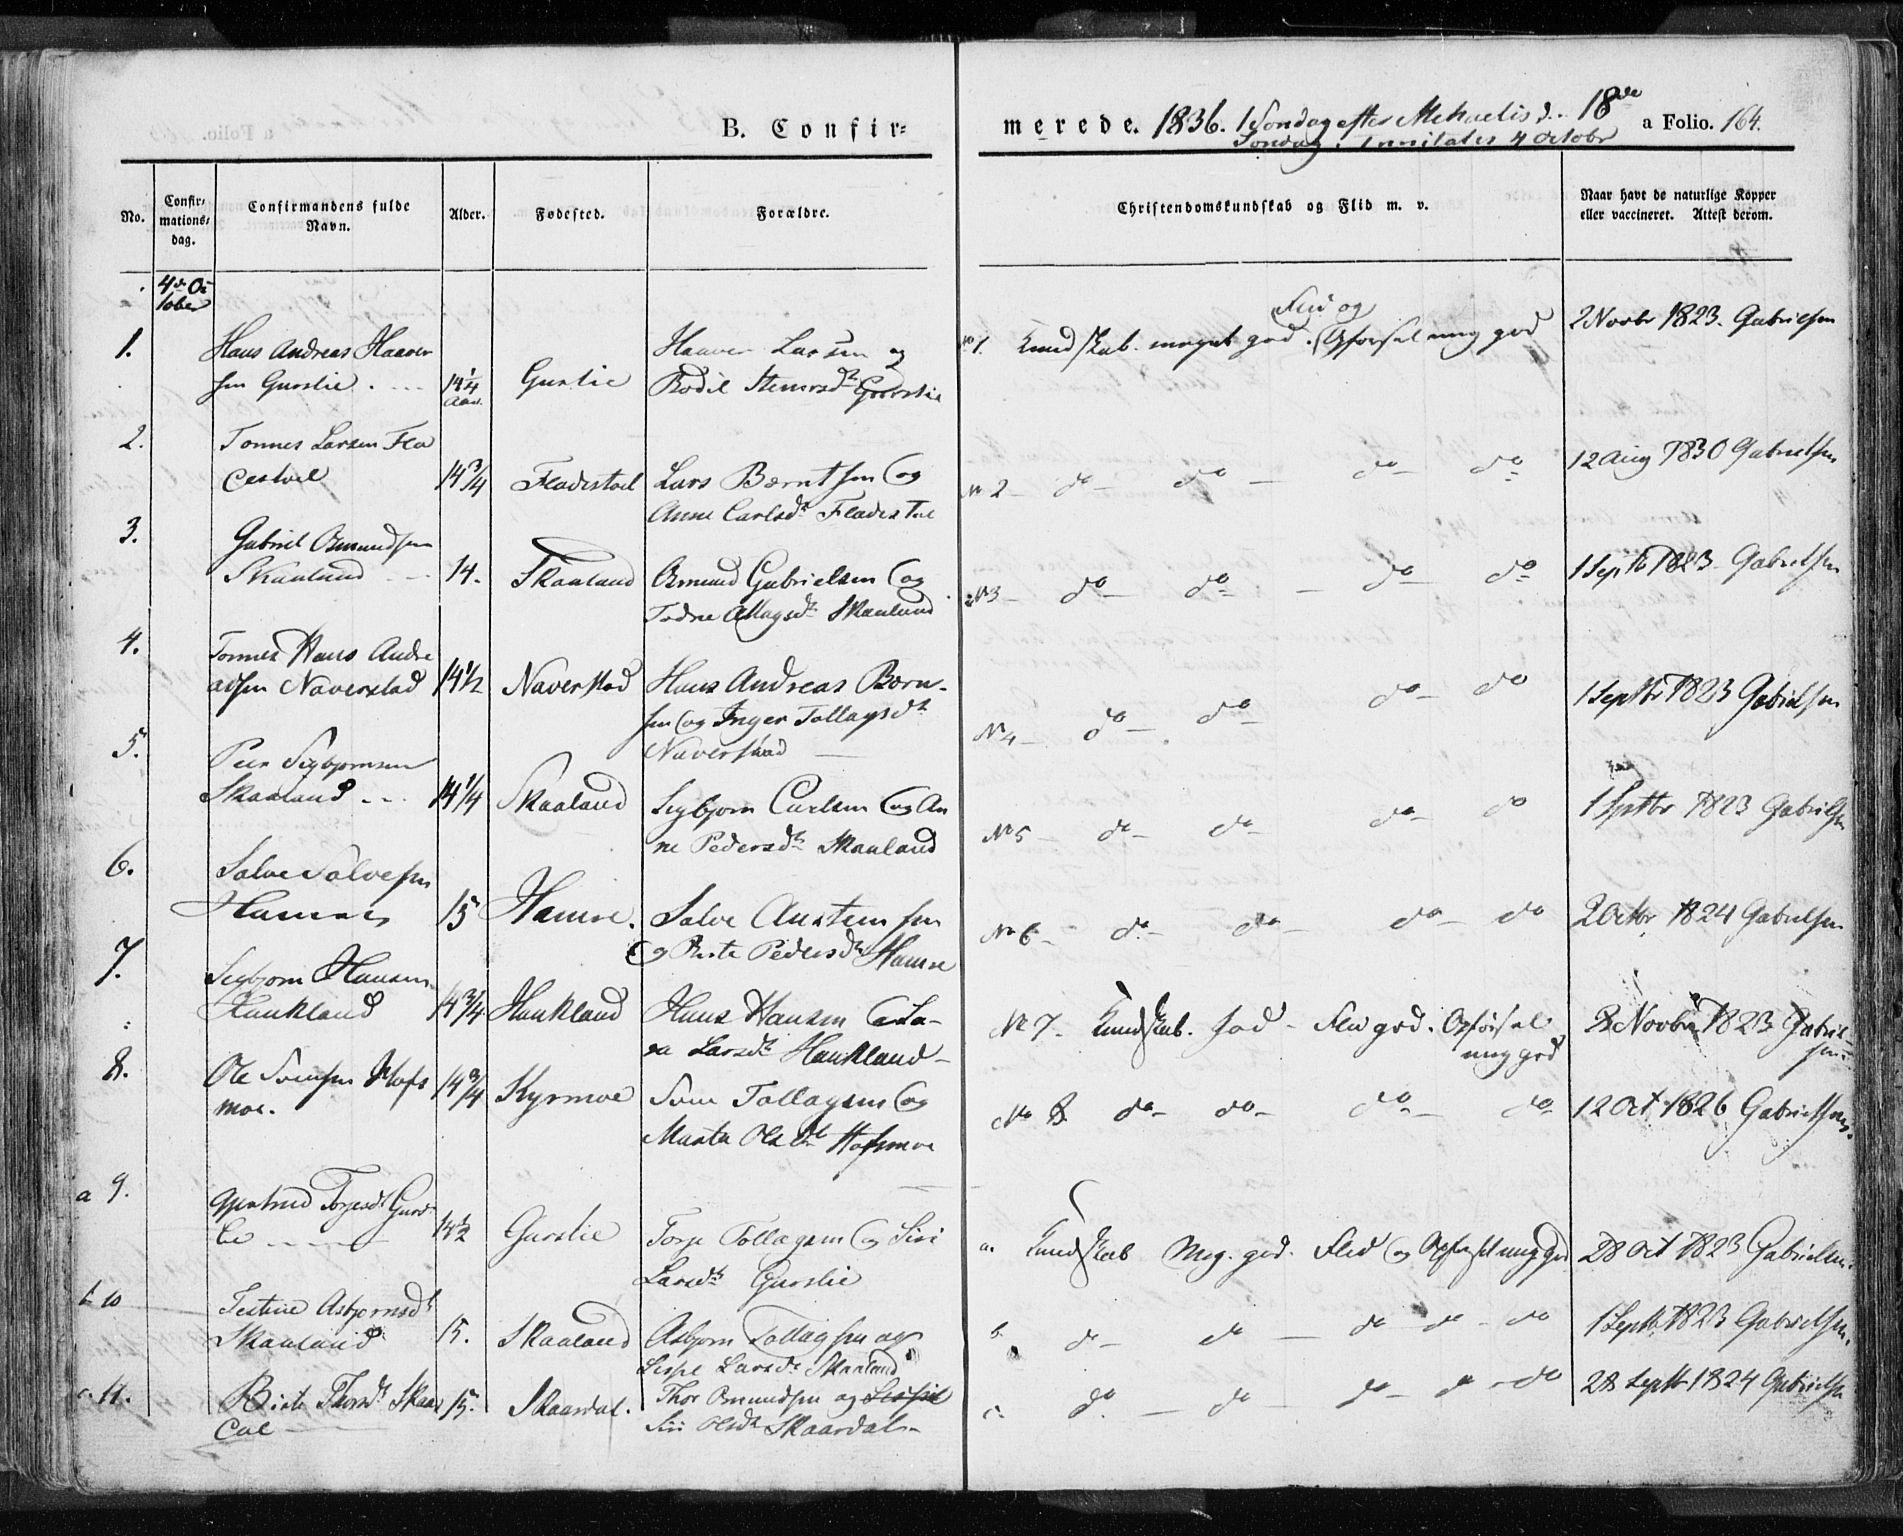 B. Confir-
merede. 1836. 1 Søndag efter Michaelis d. 18de
Søndag Trinitatis 4 October
a Folio. 164.
No.
Confir-
mations-
dag.
Confirmandens fulde
Navn.
Alder.
Fødested.
Forældre.
Christendomskundskab og Flid m. v.
Naar havt de naturlige Kopper
eller vaccineret. Attest derom.
4de Oc
tober
1. Hans Andreas Haaver
sen Gurslie 14 1/4 Aar. Gurslie
Haaver Larsen og
Bodil Steensdt Gurslie
No 1. Kundskab meget god. Flid og Opførsel meg god
2 Novbr 1823. Gabrielsen
2. Tonnes Larsen Fla
destoel 14 3/4 Fladestoel Lars Berntsen og
Anne Carlsdt Fladestoel
No 2 do do do do 12 Aug 1830 Gabrielsen
3. Gabriel Osmundsen
Skaaland 14. Skaaland Osmund Gabrielsen og
Todne Aslagsdt Skaaland
No 3 do do do do 1 Septb 1823 Gabrielsen
4. Tonnes Hans Andre
asen Naverstad 14 1/2 Naverstad Hans Andreas Bern-
sen og Inger Tollagsdt
Naverstad
No 4 do do do do 1 Septbr 1823 Gabrielsen
5. Peer Sigbjornsen
Skaaland 14 1/4 Skaaland Sigbjorn Carlsen og An
ne Pedersdt Skaaland
No 5 do do do do 1 Septbr 1823 Gabrielsen
6. Salve Salvesen
15 Hamre. Salve Austensen
og Pedersdt Hamre
No 6 do do do do 2 Octbr 1824 Gabrielsen
7. Sigbjorn Hansen
Haukland 14 3/4 Haukland Hans Hansen
Larsdt Haukland
No 7. Kundskab. god - Flid god. Opførsel
meg god
2 Novbr 1823 Gabriel-
sen
8. Ole Svensen Hofs
moe. 14 3/4 Kyrmoe Sven Tollagsen og
Marta Olsdt Hofsmoe
No 8 do do do do 12 Oct 1826 Gabrielsen
a 9. Gjertrud Torjesdt Gurs
lie 14 1/2 Gurslie Torje Tollagsen og Siri
Larsdt Gurslie
a. Kundskab Meg. god. Flid og Opførsel meg god 28 Oct 1823 Gabrielsen
b 10 Asbjornsdt
Skaaland 15. Skaaland Asbjorn Tollagsen og
Larsdt Skaaland
b. do do do do do 1 Septb 1823 Gabrielsen
c 11. Birte Thorsdt Skaar
dal 15. Skaardal. Thor Osmundsen og
Siri Olsdt Skaardal
c. do do do do do 28 Septb 1824 Gabrielsen